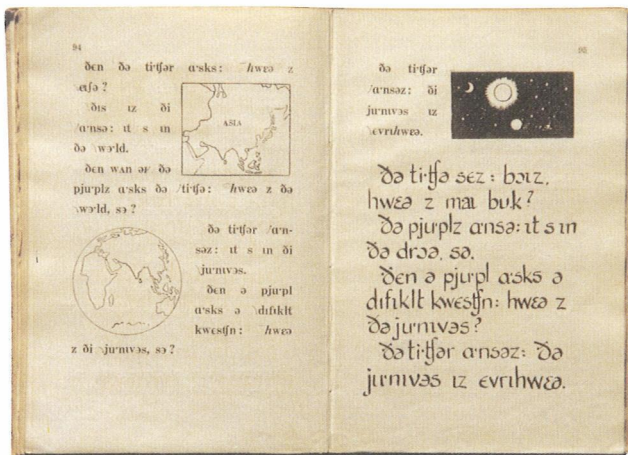 94
ðen ðə ti·tʃər ɑ·sks: hwɛə z
\eɪʃə?
ðɪs ɪz ði
/ɑ·nsə: ɪt s ɪn
ðə \wɔ·ld.
ASIA
ðen wʌn əv ðə
pju·plz ɑ·sks ðə /ti·tʃə: hwɛə z ðə
\wɔ·ld, sɔ?
ðə ti·tʃər /ɑ·n-
səz: ɪt s ɪn ði
\ju·nɪvəs.
ðen ə pju·pl
ɑ·sks ə \dɪfɪklt
kwɛstʃn: hwɛə
z ði \ju·nɪvəs, sɔ?
ðə ti·tʃər
/ɑ·nsəz: ði
ju·nɪvəs ɪz
\ɛvrɪhwɛə.
ðə ti·tʃə sɛz: bɔɪz,
hwɛə z maɪ buk?
ðə pju·plz ɑ·nsə: ɪt s ɪn
ðə drɔə, sə.
ðɛn ə pju·pl ɑ·sks ə
dɪfɪklt kwɛstʃn: hwɛə z
ðə ju·nɪvəs?
ðə ti·tʃər ɑ·nsəz: ðə
ju·nɪvəs ɪz ɛvrɪhwɛə.